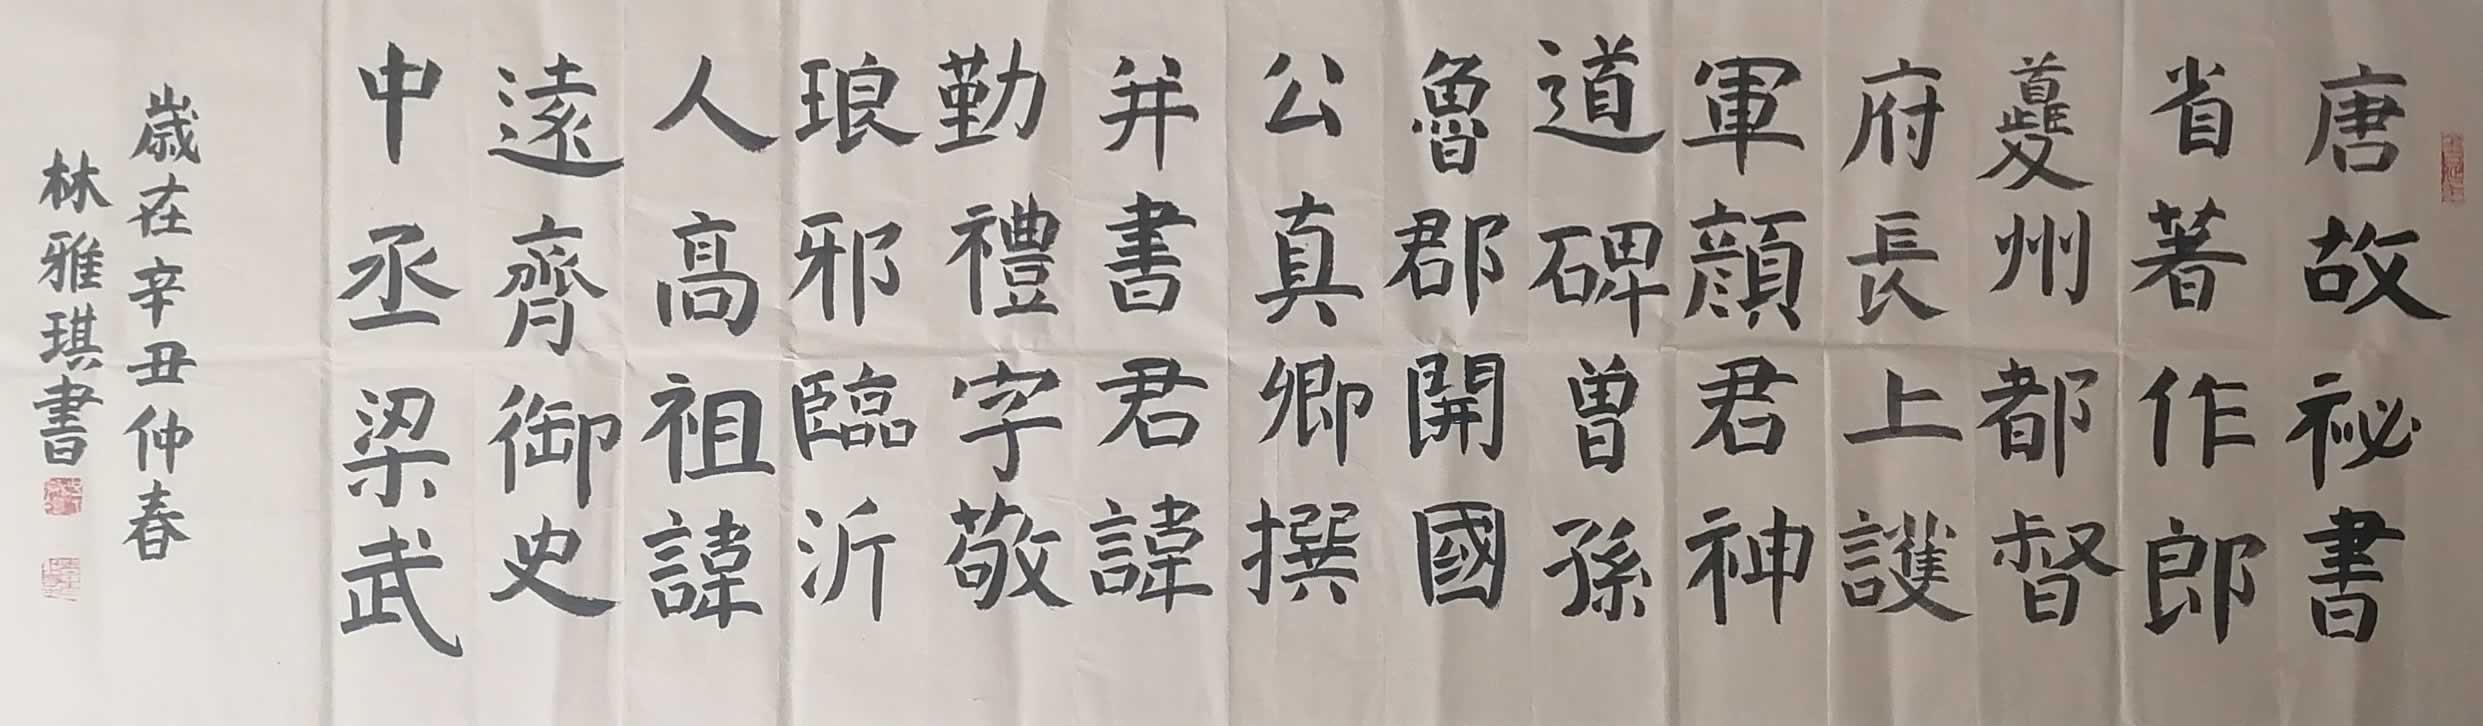 唐故祕書
省著作郎
夔州都督
府長上護
軍顏君神
道碑曾孫
魯郡開國
公真卿撰
并書君諱
勤禮字敬
琅邪臨沂
人高祖諱
遠齊御史
中丞梁武
歲在辛丑仲春
林雅琪書